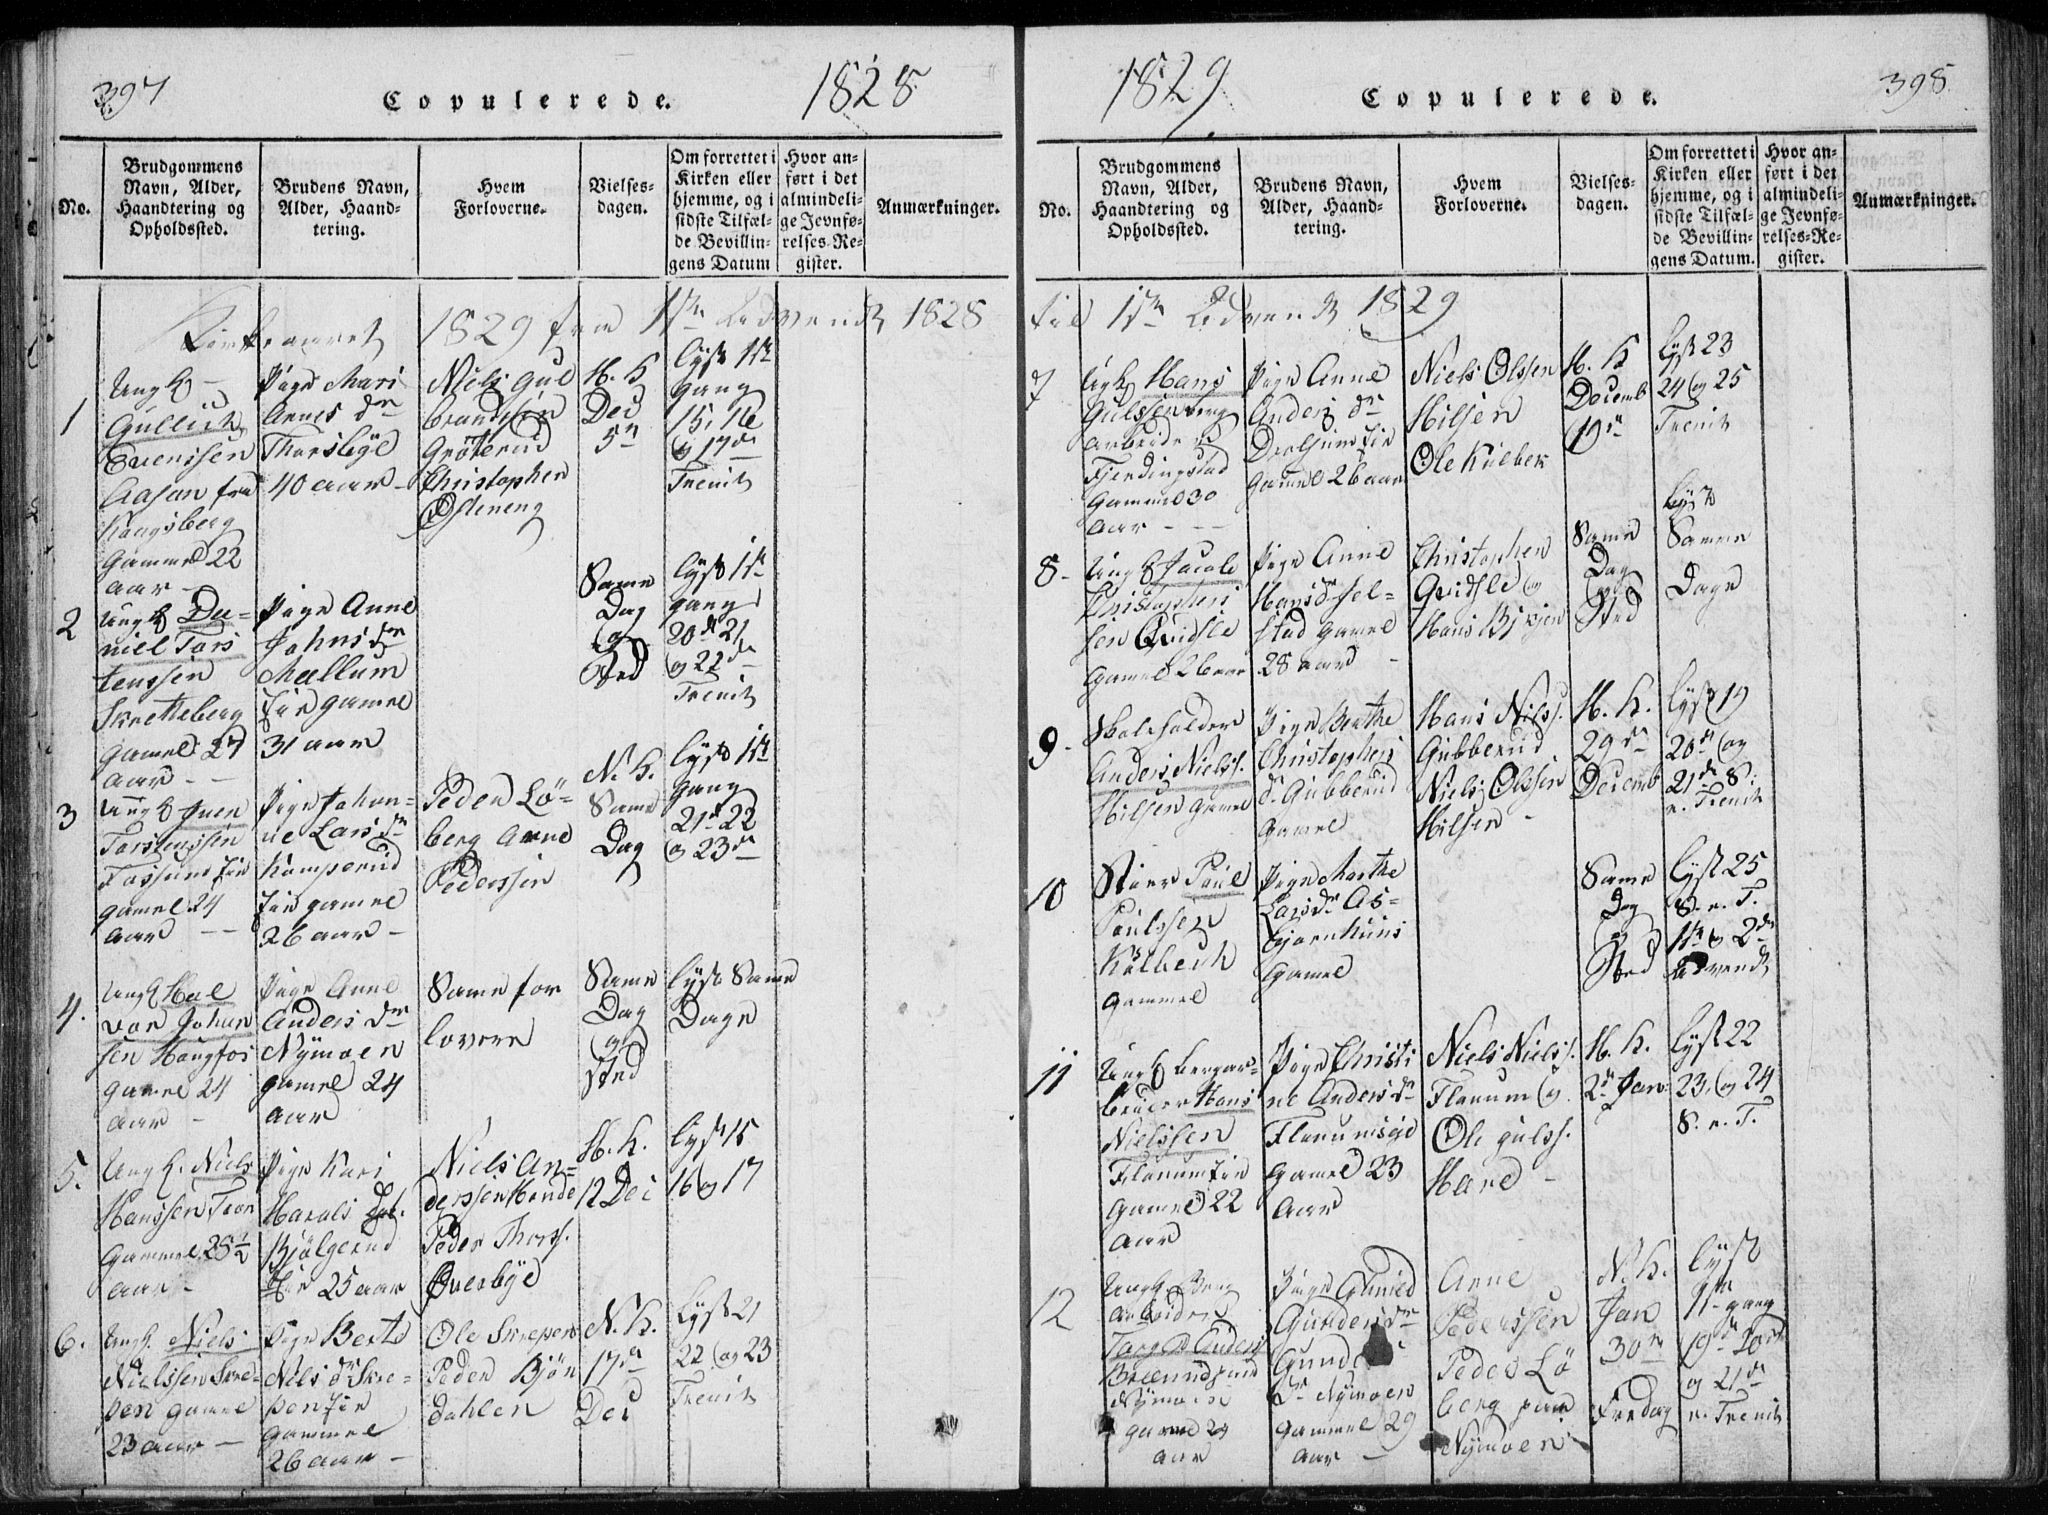 397
Copulerede.
1828
No.
Brudgommens
Navn, Alder,
Haandtering og
Opholdssted.
Brudens Navn,
Alder, Haand-
tering.
Hvem
Forloverne.
Vielses-
dagen.
Om forrettet i
Kirken eller
hjemme, og i
sidste Tilfæl-
de Bevillin-
gens Datum
Hvor an-
ført i det
almindeli-
ge Jevnfø-
relses-Re-
gister.
Anmærkninger.
Kirkeaaret 1829 fra 1ste Advendt 1828
1
Ungk
Gullich
Evenssen
Aasan fra
Kongsberg
Gammel 22
aar
Pige Mari
Arnes dr
Thorsbye
40 aar
Niels Gul
brandssen
Grøterud
Christopher
Østeneng
H. K
Dec
5n
lyst 1ste
gang
15, 16
og 17de
Trenit
2
Ungk Da-
niel Tors
tenssen
Skretteberg
gamel 27
aar
Pige Anne
Johns dr
Mællum
gamel
31 aar
Same
Dag
og
Sted
lyst 1ste
gang
20de 21
og 22de
Trenit
3
Ungk Iver
Torstenssen
Fossum
gamel 24
aar
Pige Johan-
ne Lars dr
Kamperud
gamel
26 aar
Peder Lö-
berg Arne
Pederssen
N. K.
Same
Dag
lyst 1ste
gang
21de 22
og 23de
4.
Ungk Hal
vor Johan
sen Haugfos
gamel 24
aar
Pige Anne
Anders dr
Nymoen
gamel 24
aar
Same for
lovere
Same
Dag
og
Sted
lyst Same
Dage
5.
Ungk. Niels
Hanssen
Gammel 28½
aar
Pige Kari
Harals
Bjølgerud
25 aar
Niels An-
derssen
Peder Thors.
Øverbye
H. K.
12 Dec
lyst 15
16 og 17
6.
Ungk. Niels
Nielssen Skre-
pen gamel
23 aar
Pige Berte
Nils dr Skre-
pen
gammel
26 aar
Ole Skrepen
Peder Bjön
dahlen
N. K.
17de
Dec
Lyst 21
22 og 23
Trenit
1829
Copulerede.
398
No.
Brudgommens
Navn, Alder,
Haandtering og
Opholdssted.
Brudens Navn,
Alder, Haand-
tering.
Hvem
Forloverne.
Vielses-
dagen.
Om forrettet i
Kirken eller
hjemme, og i
sidste Tilfæl-
de Bevillin-
gens Datum.
Hvor an-
ført i det
almindeli-
ge Jevnfø-
relses-Re-
gister.
Anmærkninger.
til 1ste Advendt 1829
7
Ugk Hans
Gulssen berg
arbeider
Fjerdingstad
Gammel 30
aar
Pige Anne
Anders dr
gamel 26 aar
Niels Olssen
Hilsen
Ole Kulbek
H. K
Decemb
19de
lyst 23
24 og 25
Trenit
8
Ungk Jacob
Christophers
sen Qvidsle
gamel 26 aar
Pige Anne
Hans dr Sel-
stad gamel
28 aar
Christopher
Qvidsle og
Hans
Same
Dag
og
Sted
lyst
Samme
Dage
9
Skoleholder
Anders Nielss.
Hilsen gamel
Pige Berthe
Christophers
dr Gubberud
gamel
Hans Nilss.
Gubberud
Niels Olssen
Hilsen
H. K.
29de
Decemb
lyst 19
20de og
21de S.
e. Trenit
10
Paul
Paulssen
Kølbech
gammel
Pige Marthe
Lars dr As-
bjørnhuus
gamel
Same
Dag
og
Sted
lyst 25
S. e. T.
1ste og 2den
Advendt
11
Ungk bergar-
beider Hans
Nielssen
Flanum
gamel 22
aar
Pige Christi
ne Anders dr
gamel 23
aar
Niels Nielss.
Flanum og
Ole Gulss.
H. K.
2de Jan
lyst 22
23, og 24
S. e. T.
12
Ungk Berg
arbeider
Nymoen
gamel 29
aar
Pige
Gunders dr
Nymoen
gammel 29
aar
Arne
Pederssen
Peder Lö
berg paa
Nymoen
N. K.
Jan
30te
Fredag
lyst
1ste gang
19de 20de
og 21de
e. Trenit